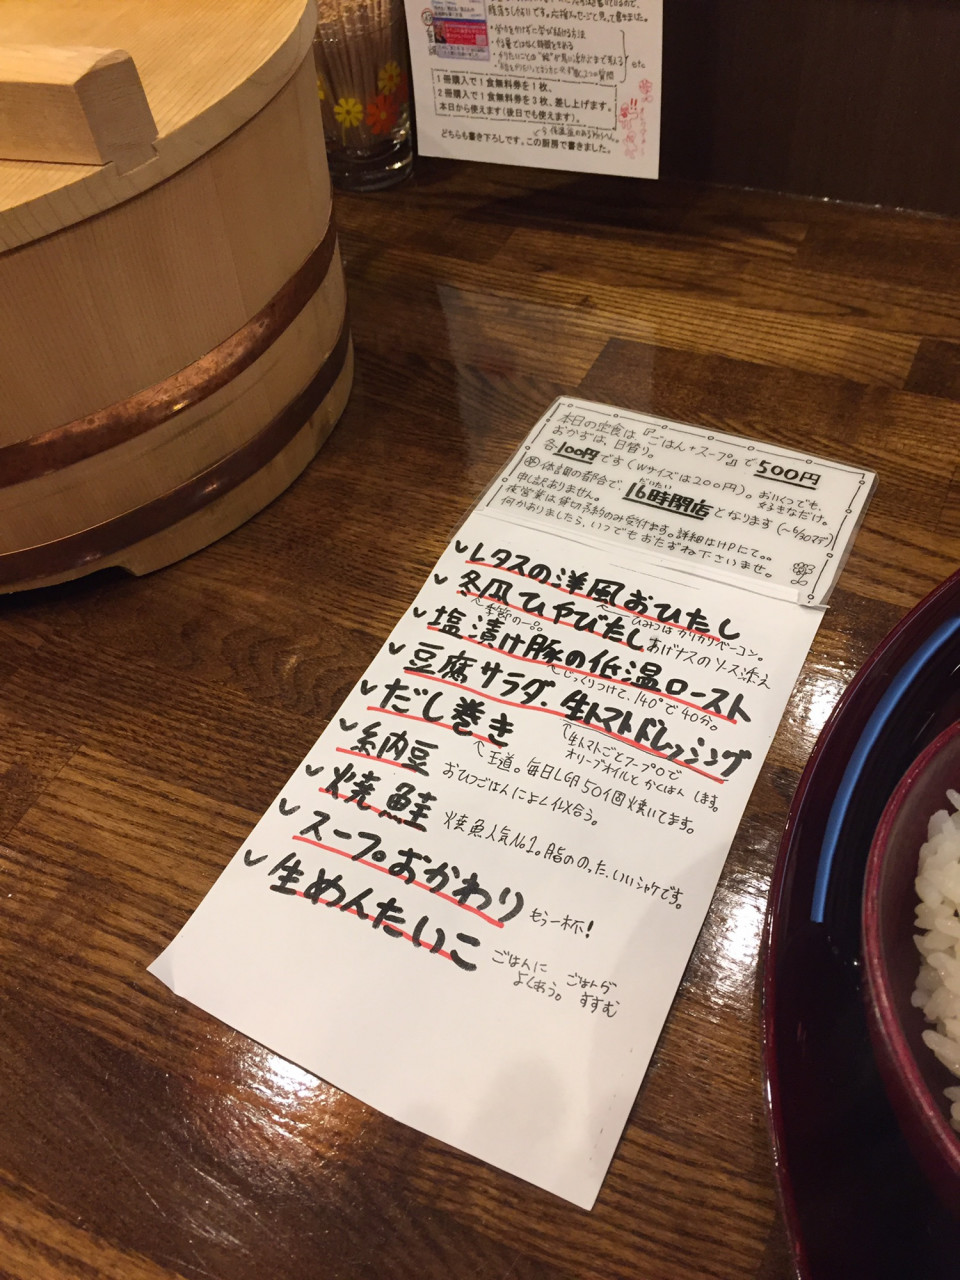 腹落ちしない
です。応援メッセージと思って書きました。
1冊購入で1食無料券を1枚、
2冊購入で1食無料券を3枚、差し上げます。
本日から使えます(後日でも使えます)。
どちらも書き下ろしです。この厨房で書きました。
本日の定食は『ごはん+スープ』で500円
おかずは、日替り。
各100円です(Wサイズは200円)。おいくつでも、好きなだけ。
体調の都合で、だいたい16時閉店となります(〜6/30マデ)
申し訳ありません。
夜営業は貸切予約のみ受付ます。詳細はHPにて。
何かありましたら、いつでもおたずね下さいませ。
レタスの洋風おひたし
ひみつはカリカリベーコン。
冬瓜ひやびたし あげナスのソース添え
季節の一品
塩漬け豚の低温ロースト
じっくりつけて、140°で40分。
豆腐サラダ、生トマトドレッシング
生トマトごとフープロで
オリーブオイルとかくはんします。
だし巻き
王道。毎日L卵50個焼いてます。
納豆 おひつごはんによく似合う。
焼鮭 焼魚人気No1。脂ののった、いいシャケです。
スープおかわり もう一杯!
生めんたいこ ごはんによくあう。ごはんがすすむ